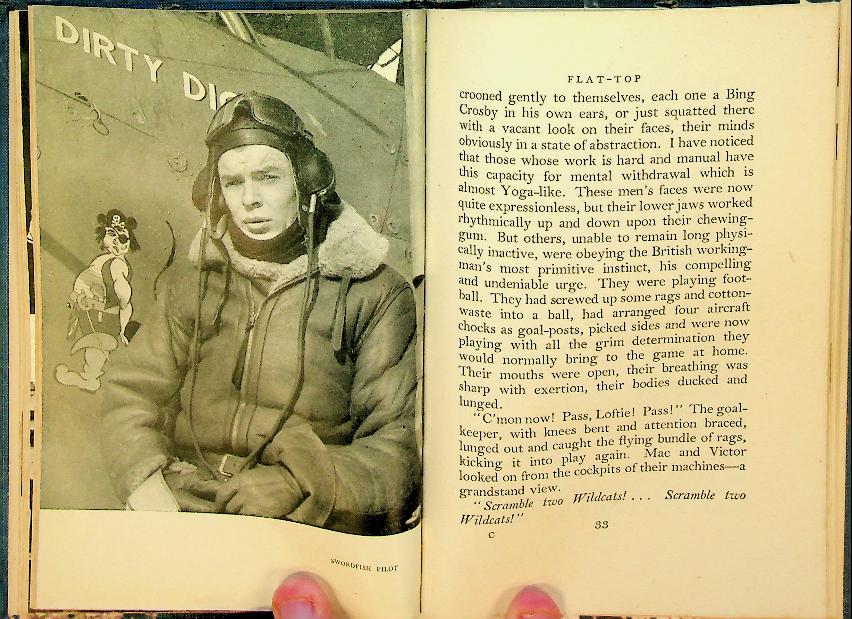 DIRTY DIC
SWORDFISH PILOT
FLAT-TOP
crooned gently to themselves, each one a Bing
Crosby in his own ears, or just squatted there
with a vacant look on their faces, their minds
obviously in a state of abstraction. I have noticed
that those whose work is hard and manual have
this capacity for mental withdrawal which is
almost Yoga-like. These men's faces were now
quite expressionless, but their lower jaws worked
rhythmically up and down upon their chewing-
gum. But others, unable to remain long physi-
cally inactive, were obeying the British working-
man's most primitive instinct, his compelling
and undeniable urge. They were playing foot-
ball. They had screwed up some rags and cotton-
waste into a ball, had arranged four aircraft
chocks as goal-posts, picked sides and were now
playing with all the grim determination they
would normally bring to the game at home.
Their mouths were open, their breathing was
sharp with exertion, their bodies ducked and
lunged.
"C'mon now! Pass, Loftie! Pass!" The goal-
keeper, with knees bent and attention braced,
lunged out and caught the flying bundle of rags,
kicking it into play again. Mac and Victor
looked on from the cockpits of their machines—a
grandstand view.
"Scramble two Wildcats! . . . Scramble two
Wildcats!"
C 33